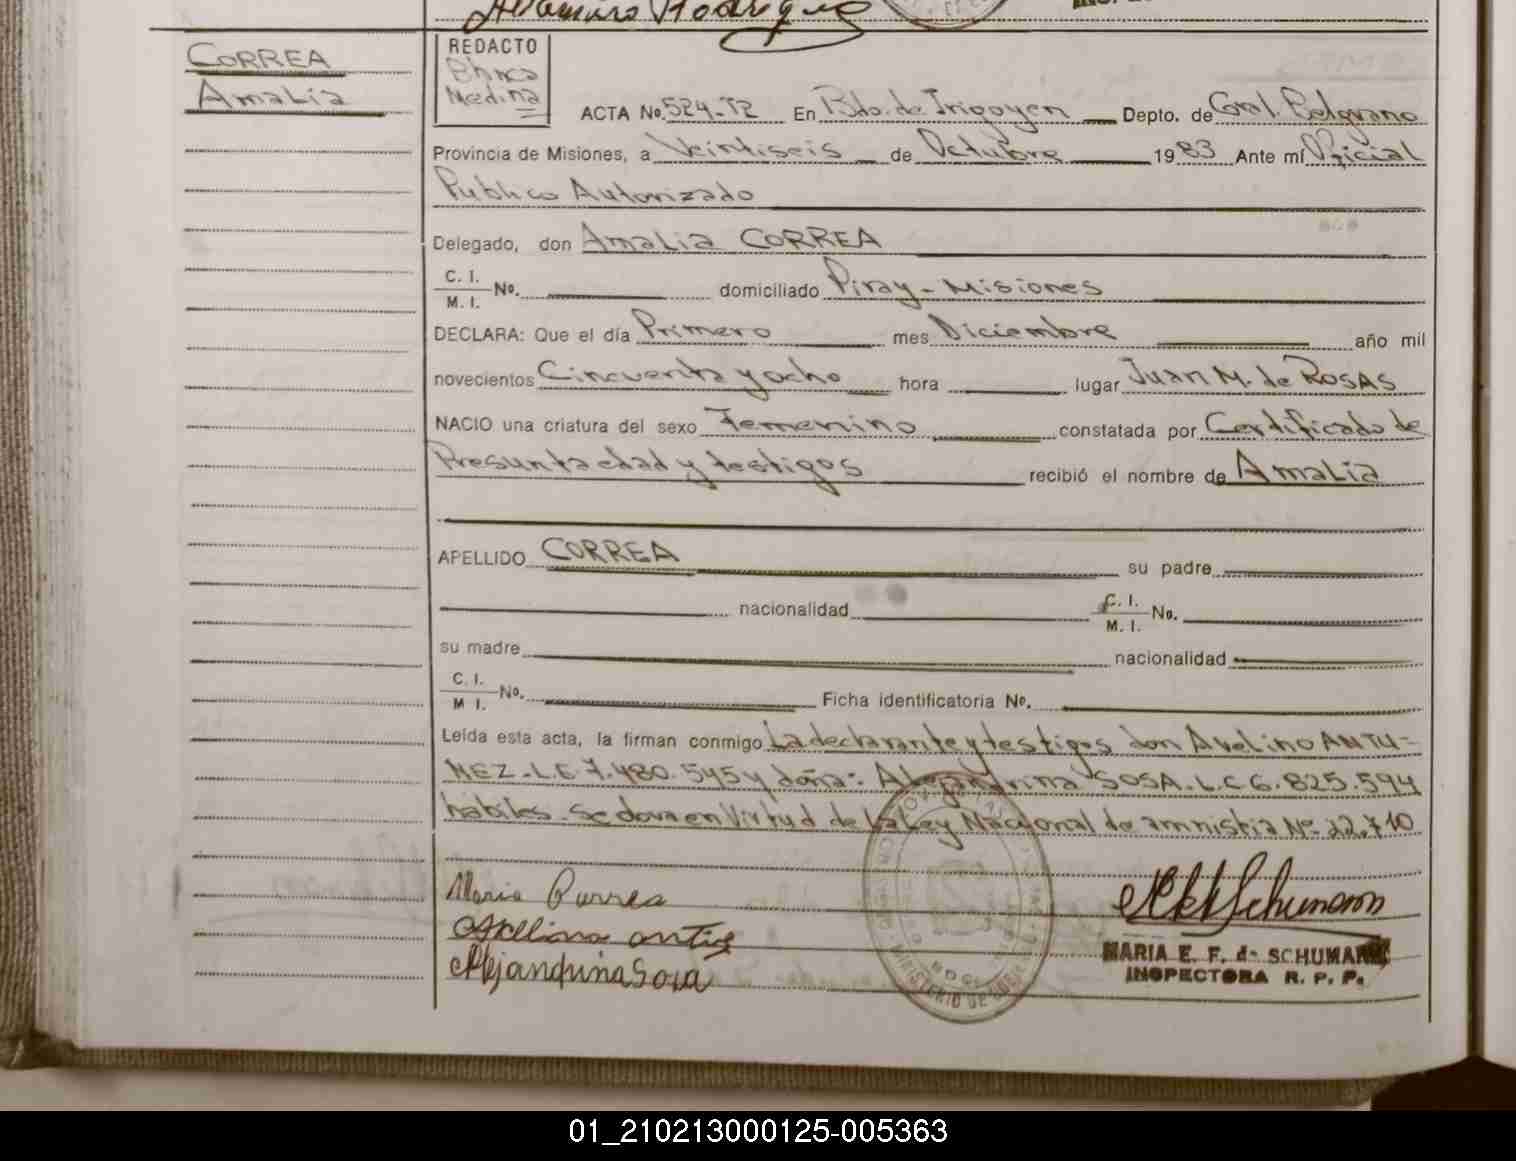 Rodriguez
CORREA
Amalia
REDACTO
Blanca
Medina
ACTA No. 524-T2 En Bdo. de Irigoyen Depto. de Gral. Belgrano
Provincia de Misiones, a Veintiseis de Octubre 1983 Ante mí Oficial
Publico Autorizado
Delegado, don Amalia CORREA
C. I.
M. I. No. domiciliado Piray - Misiones
DECLARA: Que el día Primero mes Diciembre año mil
novecientos Cincuenta y ocho hora lugar Juan M. de ROSAS
NACIO una criatura del sexo Femenino constatada por Certificado de
Presunta edad y testigos recibió el nombre de Amalia
APELLIDO CORREA su padre
nacionalidad C. I. M. I. No.
su madre nacionalidad
C. I.
M I. No. Ficha identificatoria No.
Leída esta acta, la firman conmigo La declarante y testigos don Avelino ANTU-
NEZ - L.E 7.480.545 y doña: Alejandrina SOSA - L.C 6.825.594
habiles - se dora en Virtud de la Ley Nacional de amnistia Nº 22.710
Maria
Alejandrina Sosa
MARIA E. F. de SCHUMANN
INSPECTORA R. P. P.
MINISTERIO DE
01_210213000125-005363